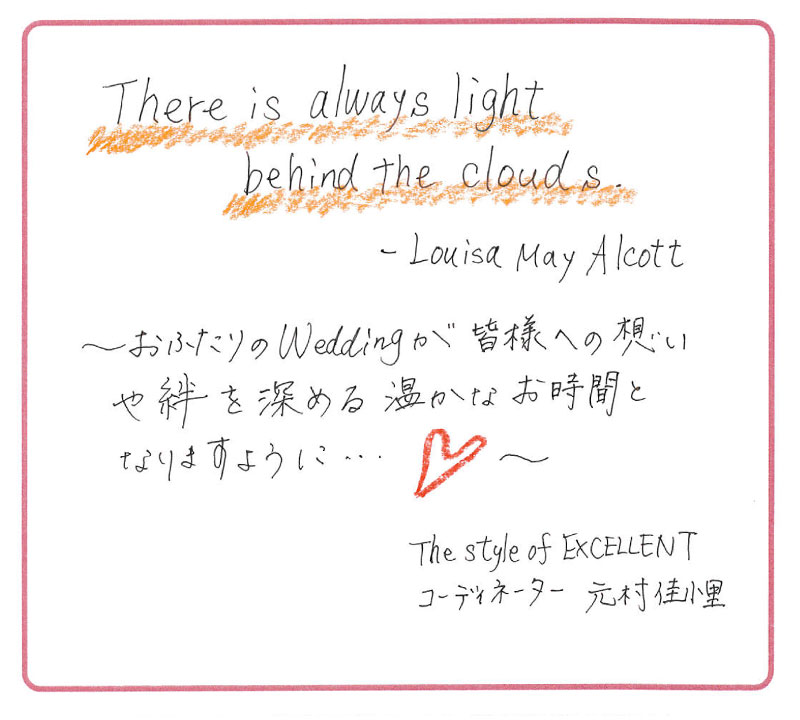 There is always light
behind the clouds.
- Louisa May Alcott
〜おふたりのWeddingが皆様への想い
や絆を深める温かなお時間と
なりますように…♡〜
The style of EXCELLENT
コーディネーター 元村佳小里